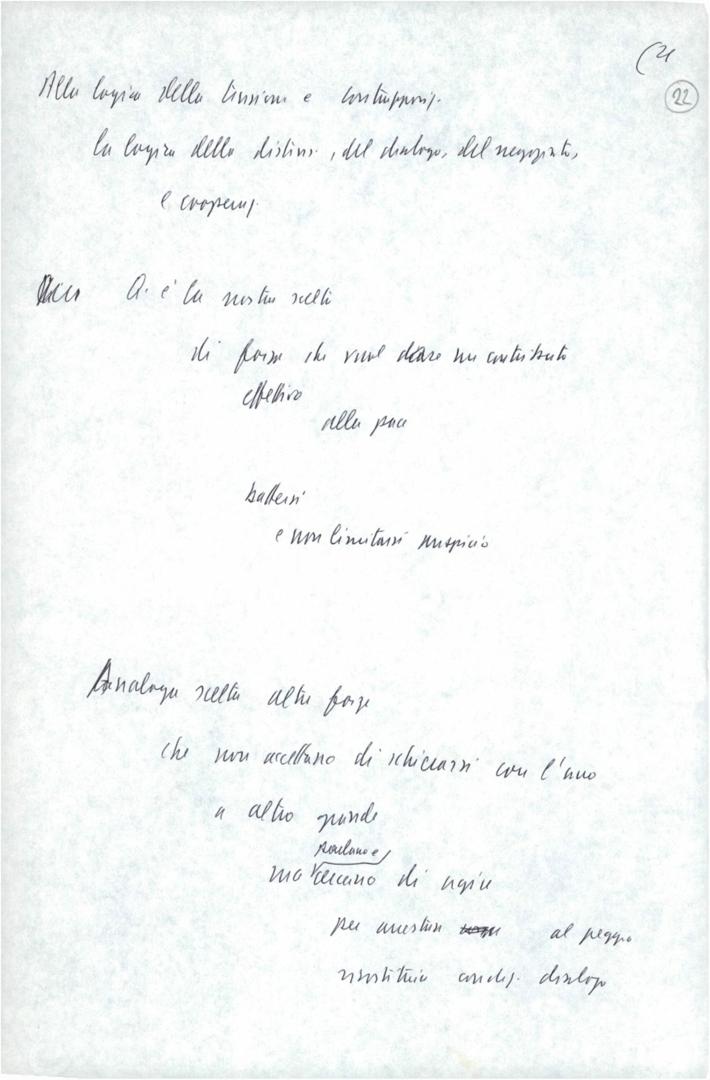 (21
22
Alla logica della tensione e contrappos.
la logica della distens., del dialogo, del negoziato,
e cooperaz.
Q. è la nostra scelta
di forza che vuol dare un contributo
effettivo
alla pace
battersi
e non limitarsi auspicio
Analoga scelta altre forze
che non accettano di schierarsi con l'uno
o altro grande
parlano e
ma cercano di agire
per arrestare al peggio
ricostituire condiz. dialogo